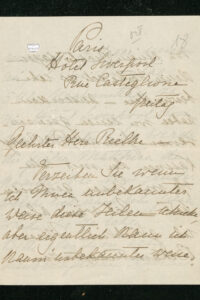 Paris
Hôtel Liverpool
Rue Castiglione
Freitag
Geehrter Herr Rielke —
Verzeihen Sie wenn
ich Ihnen unbekannter
weise diese Zeilen schicke
aber eigentlich kann ich
kaum unbekannter weise,